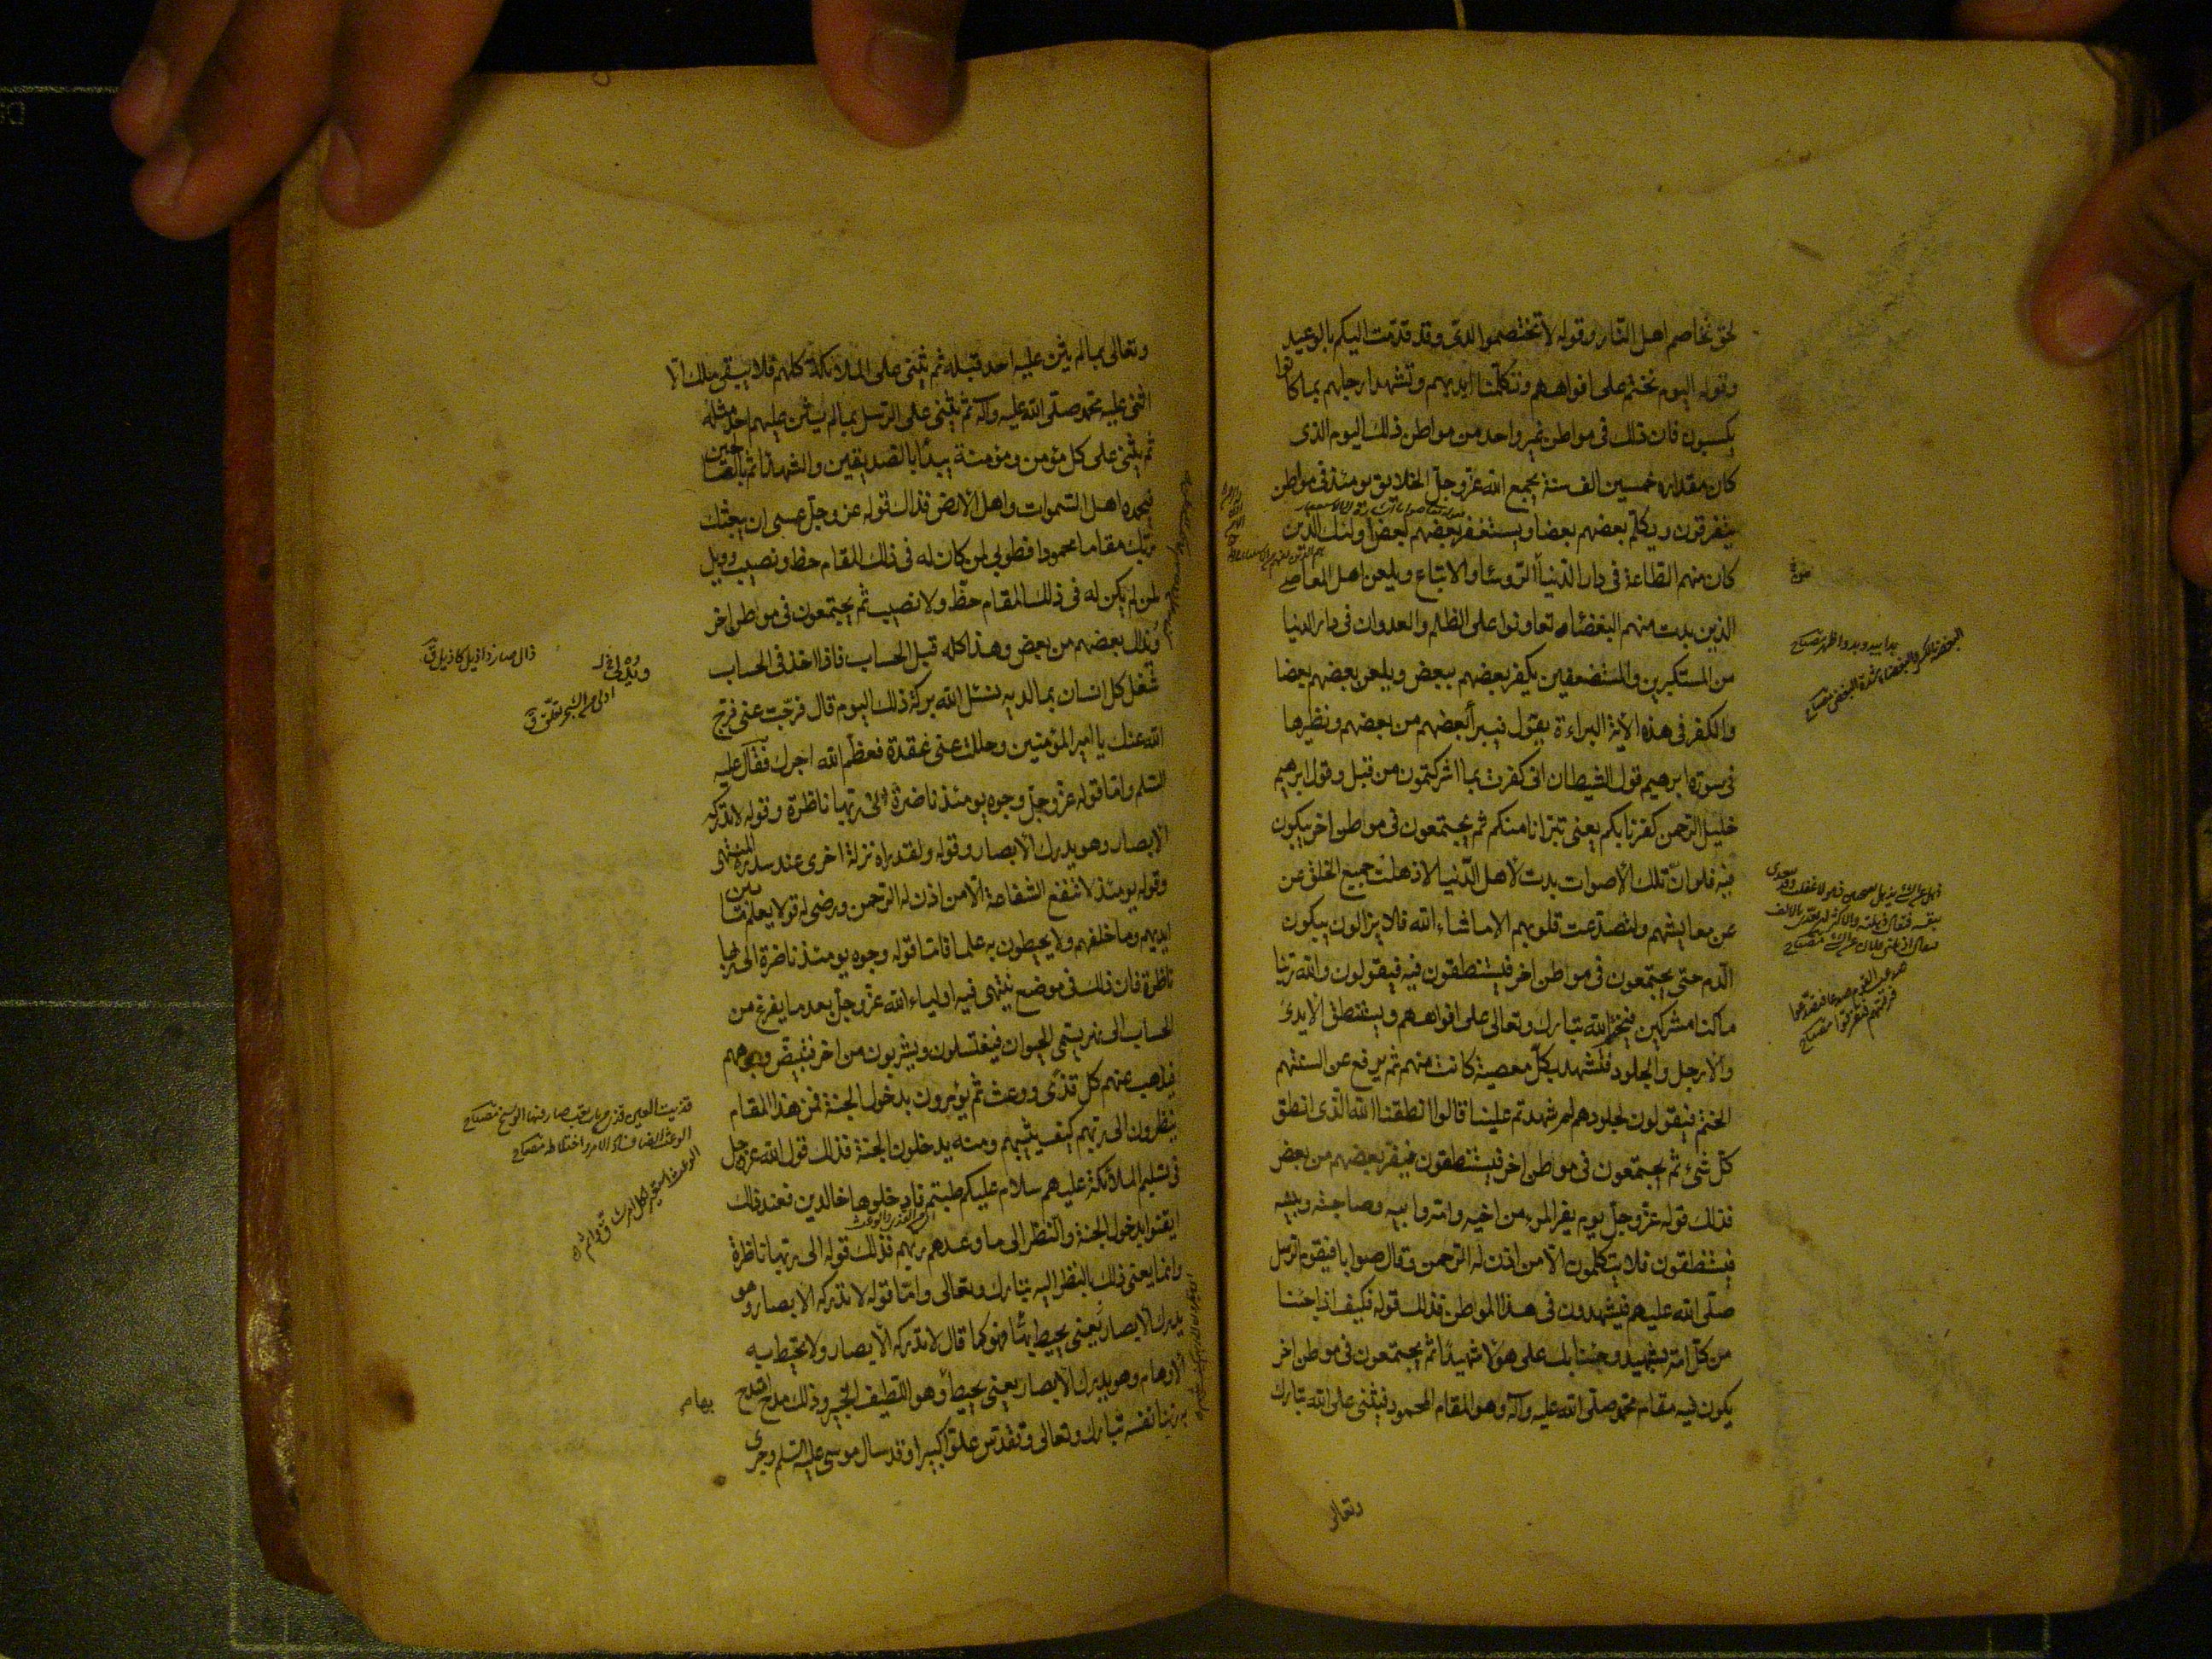 لحق تخاصم اهل النار وقوله لا تختصموا لدی وقد قدمت اليكم بالوعيد
وقوله اليوم نختم على افواههم وتكلمنا ايديهم وتشهد ارجلهم بما كانوا
يكسبون فان ذلك فى مواطن غير واحد من مواطن ذلك اليوم الذى
كان مقداره خمسين الف سنة يجمع الله عزوجل الخلايق يومئذ فى مواطن
يتفرقون ويكلم بعضهم بعضا ويستغفر بعضهم لبعض اولئك الذين
كان منهم الطاعة فى دار الدنيا الرؤسا والاتباع ويلعن اهل المعاصى
الذين بدت منهم البغضاء وتعاونوا على الظلم والعدوان فى دار الدنيا
من المستكبرين والمستضعفين يكفر بعضهم ببعض ويلعن بعضهم بعضا
والكفر فى هذه الاية البراءة يقول فيبرأ بعضهم من بعضهم ونظيرها
فى سورة ابرهيم قول الشيطان انى كفرت بما اشركتمون من قبل وقول ابرهيم
خليل الرحمن كفرنا بكم يعنى تبرانا منكم ثم يجتمعون فى مواطن اخر يبكون
فيه فلو ان تلك الأصوات بدت لأهل الدنيا لاذهلت جميع الخلق عن
عن معايشهم ولتصدعت قلوبهم الا ما شاء الله فلا يزالون يبكون
الدم حتى يجتمعون فى مواطن اخر فيستنطقون فيه فيقولون والله ربنا
ما كنا مشركين فيختم الله تبارك وتعالى على افواههم ويستنطق الأيدى
والأرجل والجلود فتشهد بكل معصية كانت منهم ثم يرفع عن السنتهم
الختم فيقولون لجلودهم لم شهدتم علينا قالوا انطقنا الله الذى انطق
كل شئ ثم يجتمعون فى مواطن اخر فيستنطقون فيفر بعضهم من بعض
فذلك قوله عزوجل يوم يفر المرء من اخيه وامه وابيه وصاحبته وبنيه
فيستنطقون فلا يتكلمون الا من اذن له الرحمن وقال صوابا فيقوم الرسل
صلى الله عليهم فيشهدون فى هذا المواطن فذلك قوله فكيف اذا جئنا
من كل امة بشهيد وجئنا بك على هؤلا شهيدا ثم يجتمعون فى مواطن اخر
يكون فيه مقام محمد صلى الله عليه وآله وهو المقام المحمود فيثنى على الله تبارك
وتعالى
وتعالى بما لم يثن عليه احد قبله ثم يثنى على الملائكة كلهم فلا يبقى ملك الا
اثنى عليه محمد صلى الله عليه وآله ثم يثنى على الرسل بما لم يثن عليهم احد مثله
ثم يثنى على كل مؤمن ومؤمنة يبدأ بالصديقين والشهدا ثم بالصالحين
فيحمده اهل السموات واهل الأرض فذلك قوله عز وجل عسى ان يبعثك
ربك مقاما محمودا فطوبى لمن كان له فى ذلك المقام حظ ونصيب وويل
لمن لم يكن له فى ذلك المقام حظ ولا نصيب ثم يجتمعون فى مواطن اخر
ويدال بعضهم من بعض وهذا كله قبل الحساب فاذا اخذ فى الحساب
شغل كل انسان بما لديه نسئل الله بركة ذلك اليوم قال فرجت عنى فرج
الله عنك يا امير المؤمنين وحللت عنى عقدة فعظم الله اجرك فقال عليه
السلم واما قوله عزوجل وجوه يومئذ ناضرة الى ربها ناظرة وقوله لا تدركه
الأبصار وهو يدرك الأبصار وقوله ولقد راه نزلة اخرى عند سدرة المنتهى
وقوله يومئذ لا تنفع الشفاعة الا من اذن له الرحمن ورضى له قولا يعلم ما بين
ايديهم وما خلفهم ولا يحيطون به علما فاما قوله وجوه يومئذ ناضرة الى ربها
ناظرة فان ذلك فى موضع ينتهى فيه اولياء الله عزوجل بعد ما يفرغ من
الحساب الى نهر يسمى الحيوان فيغتسلون ويشربون من اخر فتبيض وجوههم
فيذهب عنهم كل قذى ووعث ثم يؤمرون بدخول الجنة فمن هذا المقام
ينظرون الى ربهم كيف يثيبهم ومنه يدخلون الجنة فذلك قول الله عزوجل
فى تسليم الملائكة عليهم سلام عليكم طبتم فادخلوها خالدين فعند ذلك
ايقنوا بدخول الجنة والنظر الى ما وعدهم ربهم فذلك قوله الى ربها ناظرة
وانما يعنى ذلك بالنظر اليه تبارك وتعالى واما قوله لا تدركه الأبصار وهو
يدرك الأبصار يعنى يحيط بها فهو كما قال لا تدركه الأبصار ولا تحيط به
الأوهام وهو يدرك الأبصار يعنى يحيط وهو اللطيف الخبير وذلك مدح امتدح
به ربنا نفسه تبارك وتعالى وتقدس علوا كبيرا وقد سال موسى عليه السلم وجرى
بها م